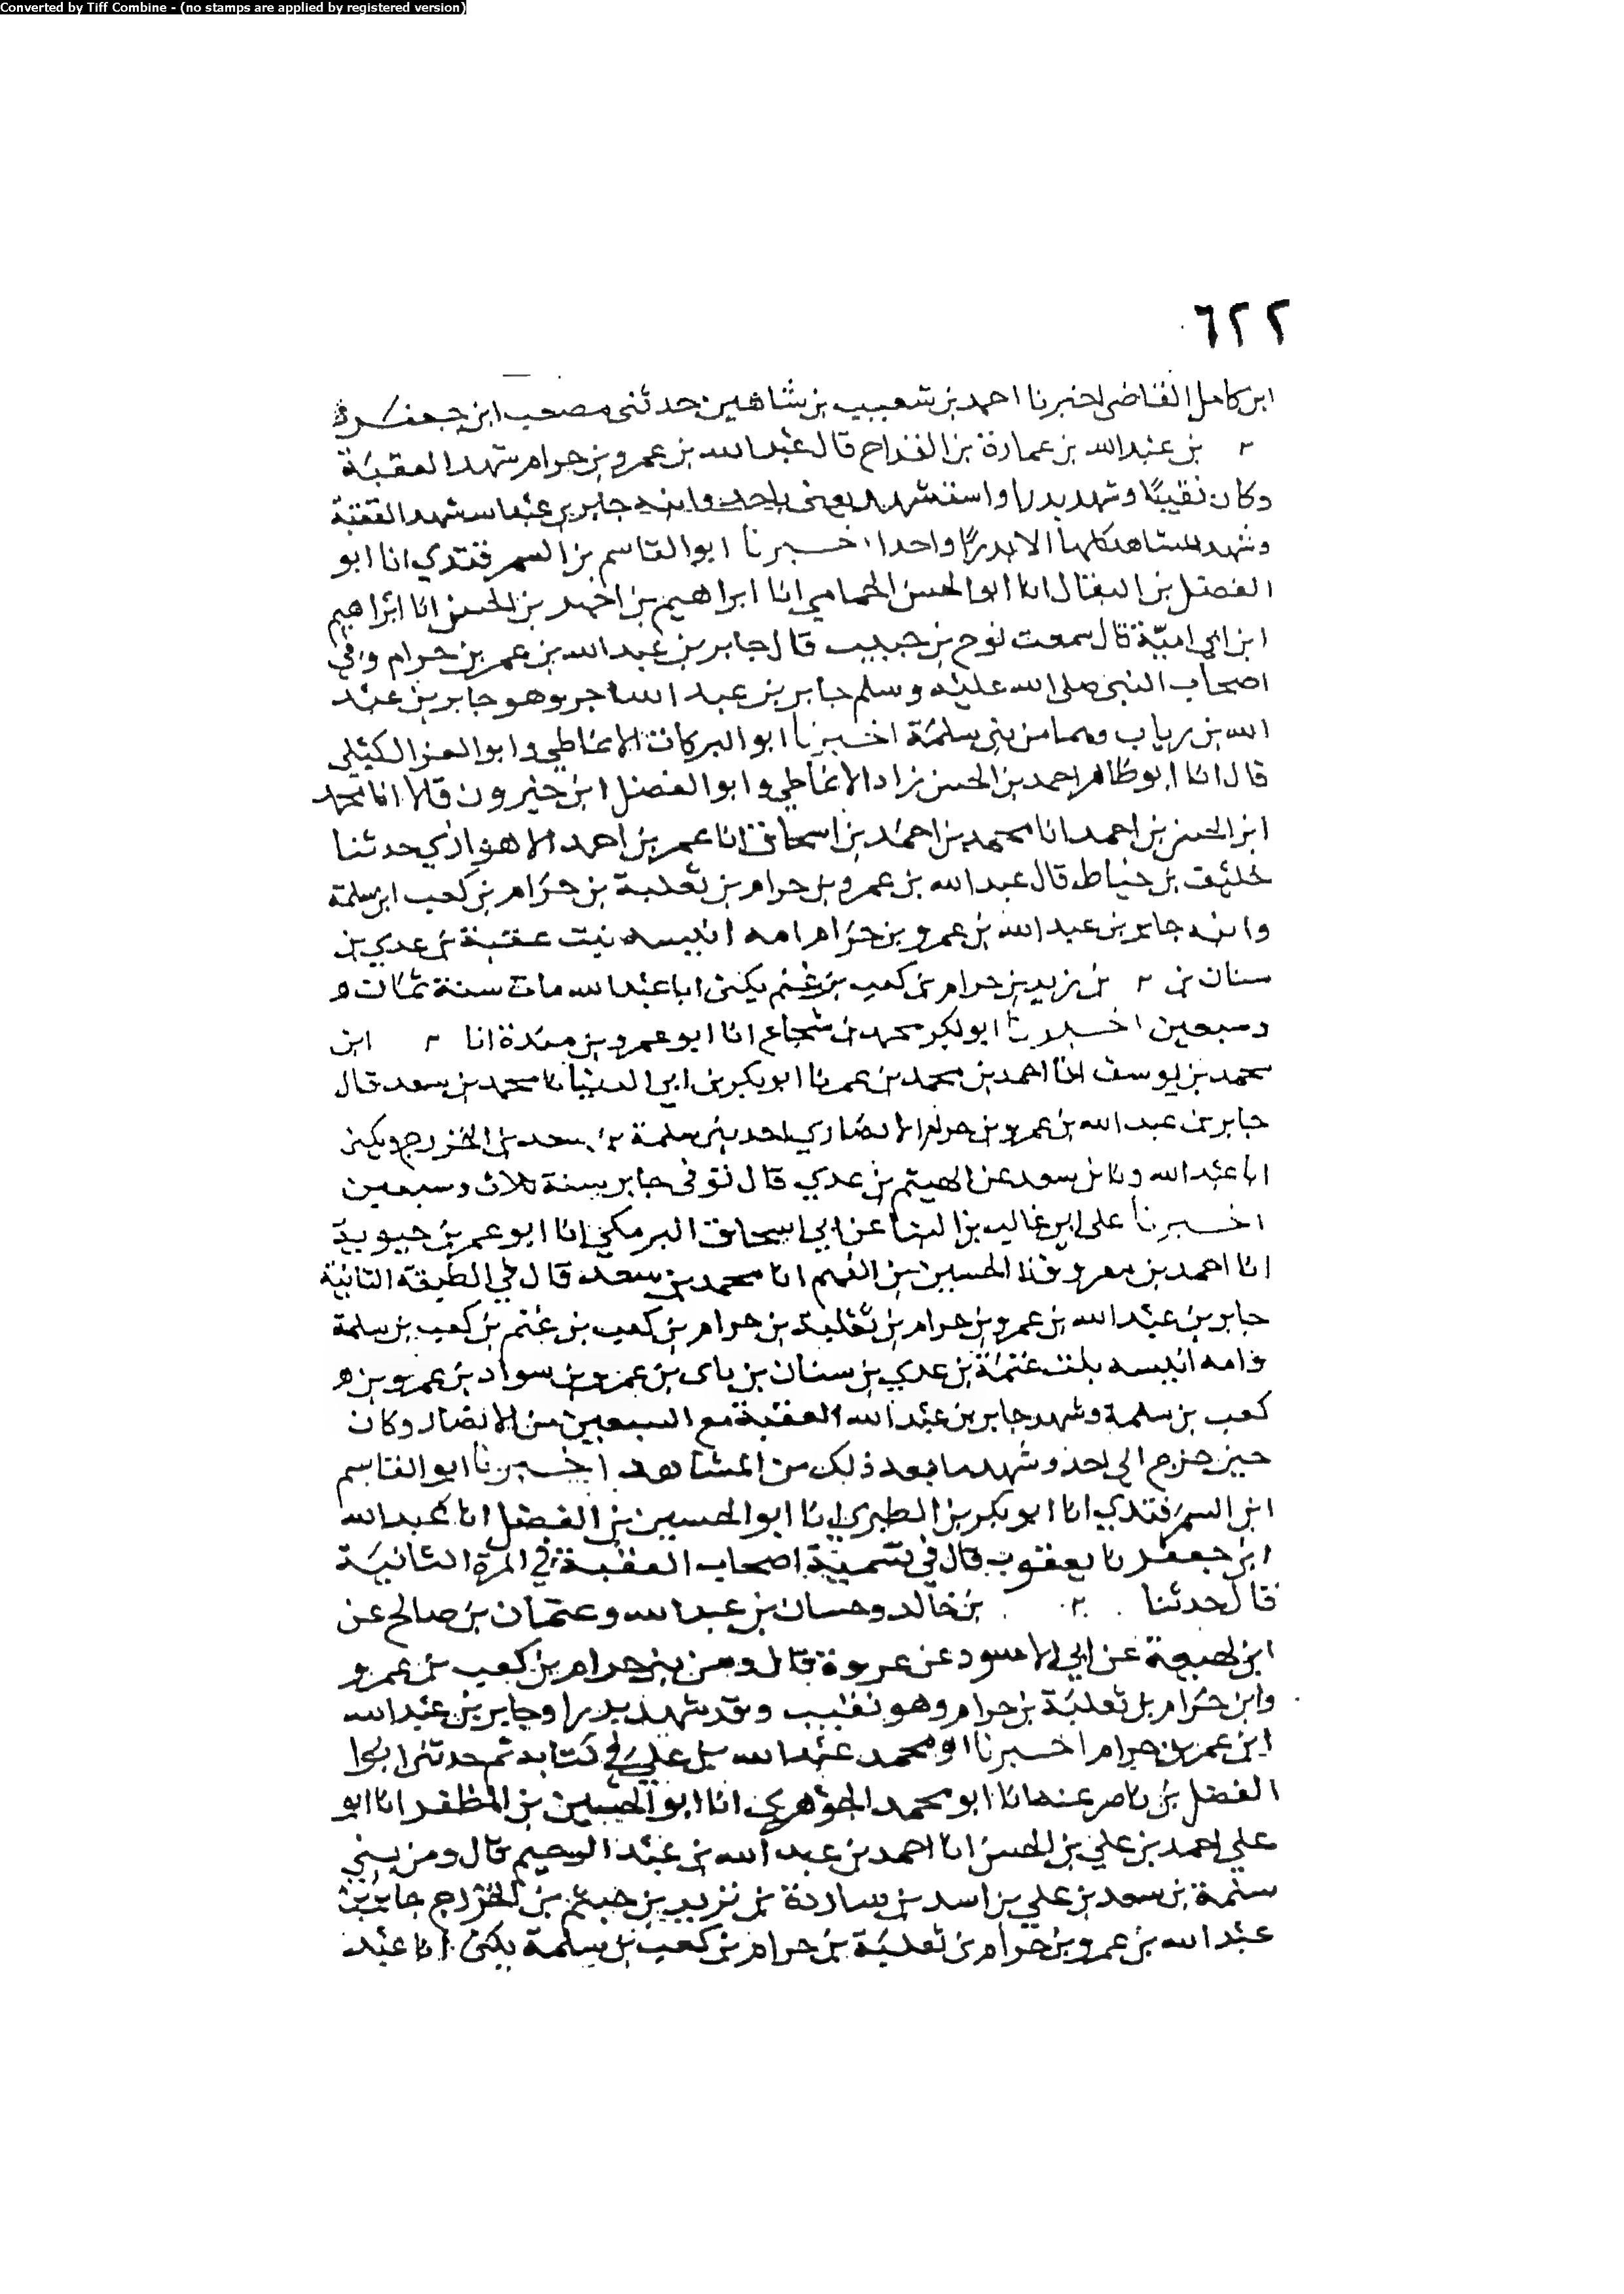 Converted by Tiff Combine - (no stamps are applied by registered version)
٦٢٢
ابن كامل القاضى اخبرنا احمد بن شعيب بن شاهين حدثنى مصعب ابن جعفر
بن عبد الله بن عمارة بن القداح قال عبد الله بن عمرو بن حرام شهد العقبة
وكان نقيبًا وشهد بدرا واستشهد يعنى باحد وابنه جابر بن عبد الله شهد العقبة
وشهد المشاهد كلها الا بدرًا واحدا اخبرنا ابو القاسم بن السمرقندي انا ابو
الفضل بن البقال انا ابو الحسن الحمامي انا ابراهيم بن احمد بن الحسن انا ابراهيم
ابن ابي اميّة قال سمعت نوح بن حبيب قال جابر بن عبد الله بن عمر بن حرام وفي
اصحاب النبي صلى الله عليه وسلم جابر بن عبد الله اخر وهو جابر بن عبد
الله بن رياب وهما من بني سلمة اخبرنا ابو البركات الانماطي وابو العز الكيلي
قال انا ابو طاهر احمد بن الحسن زاد الانماطي وابو الفضل ابن خيرون قالا انا محمد
ابن الحسن بن احمد انا محمد بن احمد بن اسحاق انا عمر بن احمد الاهوازي حدثنا
خليفة بن خياط قال عبد الله بن عمرو بن حرام بن ثعلبة بن حرام بن كعب ابن سلمة
وابنه جابر بن عبد الله بن عمرو بن حرام امه انيسه بنت عقبة بن عدي بن
سنان بن بن زيد بن حرام بن كعب بن غنم يكنى ابا عبد الله مات سنة ثمان و
وسبعين اخبرنا ابو بكر محمد بن شجاع انا ابو عمرو بن مندة انا ابن
محمد بن يوسف انا احمد بن محمد بن عمر نا ابو بكر بن ابي الدنيا نا محمد بن سعد قال
جابر بن عبد الله بن عمرو بن حرام الانصاري احد بني سلمة بن سعد بن الخزرج ويكنى
ابا عبد الله ونا بن سعد عن الهيثم بن عدي قال توفى جابر سنة ثلاث وسبعين
اخبرنا على ابن غالب بن البنا عن ابي اسحاق البرمكي انا ابو عمر بن حيوية
انا احمد بن معروف نا الحسين بن الفهم انا محمد بن سعد قال في الطبقة الثانية
جابر بن عبد الله بن عمرو بن حرام بن ثعلبة بن حرام بن كعب بن غنم بن كعب بن سلمة
وامه انيسه بنت غنمة بن عدي بن سنان بن ياى بن عمرو بن سواد بن عمرو بن ه
كعب بن سلمة وشهد جابر بن عبد الله العقبة مع السبعين من الانصار وكان
حين خرج الى احد وشهد ما بعد ذلك من المشاهد اخبرنا ابو القاسم
ابن السمرقندي انا ابو بكر بن الطبري انا ابو الحسين بن الفضل انا عبد الله
ابن جعفر نا يعقوب قال في تسمية اصحاب العقبة في المرة الثانية
قال حدثنا بن خالد وحسان بن عبد الله وعثمان بن صالح عن
ابن لهيعة عن ابي الاسود عن عروة قال ومن بني حرام بن كعب بن عمرو
وابن حرام بن ثعلبة بن حرام وهو نقيب وقد شهد بدرا وجابر بن عبد الله
ابن عمر بن حرام اخبرنا ابو محمد عبد الله بن علي في كتابه ثم حدثني ابو
الفضل بن ناصر عنه انا ابو محمد الجوهري انا ابو الحسين بن المظفر انا ابو
علي احمد بن علي بن الحسن انا احمد بن عبد الله بن عبد الرحيم قال ومن بني
سلمة بن سعد بن علي بن اسد بن ساردة بن تزيد بن جشم بن الخزرج جابر بن
عبد الله بن عمرو بن حرام بن ثعلبة بن حرام بن كعب بن سلمة يكنى ابا عبد